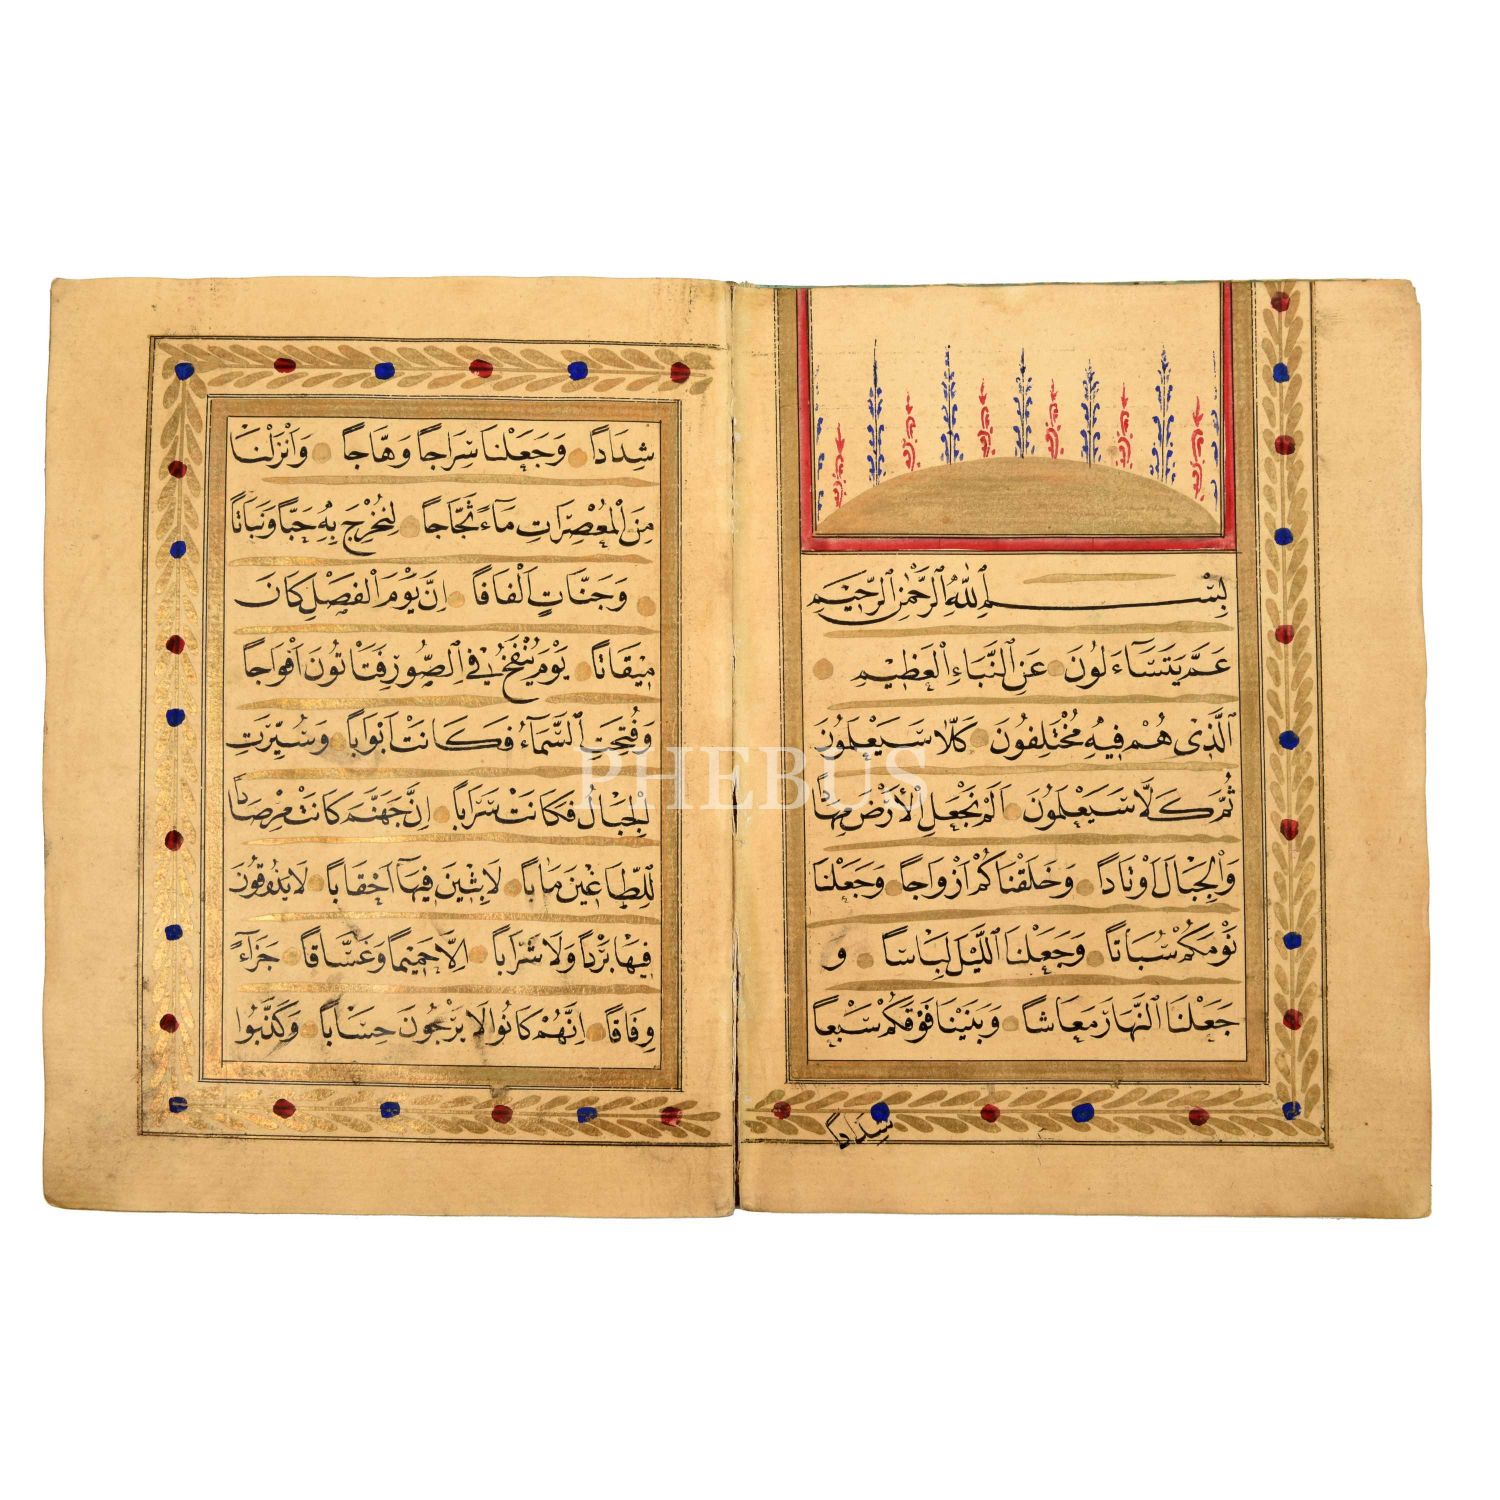 بِسْمِ اللهِ الرَّحْمٰنِ الرَّحِيمِ
عَمَّ يَتَسَآءَلُونَ عَنِ النَّبَاءِ الْعَظِيمِ
الَّذِى هُمْ فِيهِ مُخْتَلِفُونَ كَلَّا سَيَعْلَمُونَ
ثُمَّ كَلَّا سَيَعْلَمُونَ اَلَمْ نَجْعَلِ الْأَرْضَ مِهَادًا
وَالْجِبَالَ اَوْتَادًا وَخَلَقْنَاكُمْ اَزْوَاجًا وَجَعَلْنَا
نَوْمَكُمْ سُبَاتًا وَجَعَلْنَا اللَّيْلَ لِبَاسًا وَ
جَعَلْنَا النَّهَارَ مَعَاشًا وَبَنَيْنَا فَوْقَكُمْ سَبْعًا
شِدَادًا
شِدَادًا وَجَعَلْنَا سِرَاجًا وَهَّاجًا وَاَنْزَلْنَا
مِنَ الْمُعْصِرَاتِ مَآءً ثَجَّاجًا لِنُخْرِجَ بِهِ حَبًّا وَنَبَاتًا
وَجَنَّاتٍ اَلْفَافًا اِنَّ يَوْمَ الْفَصْلِ كَانَ
مِيقَاتًا يَوْمَ يُنْفَخُ فِى الصُّورِ فَتَاْتُونَ اَفْوَاجًا
وَفُتِحَتِ السَّمَآءُ فَكَانَتْ اَبْوَابًا وَسُيِّرَتِ
الْجِبَالُ فَكَانَتْ سَرَابًا اِنَّ جَهَنَّمَ كَانَتْ مِرْصَادًا
لِلطَّاغِينَ مَاٰبًا لَابِثِينَ فِيهَآ اَحْقَابًا لَا يَذُوقُونَ
فِيهَا بَرْدًا وَلَا شَرَابًا اِلَّا حَمِيمًا وَغَسَّاقًا جَزَآءً
وِفَاقًا اِنَّهُمْ كَانُوا لَا يَرْجُونَ حِسَابًا وَكَذَّبُوا
PHEBUS